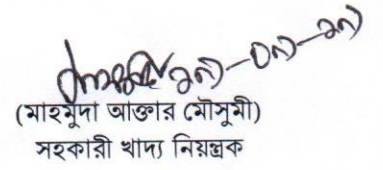 (মাহমুদা আক্তার মৌসুমী)
সহকারী খাদ্য নিয়ন্ত্রক